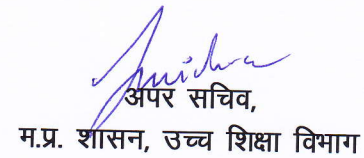 अपर सचिव,
म.प्र. शासन, उच्च शिक्षा विभाग